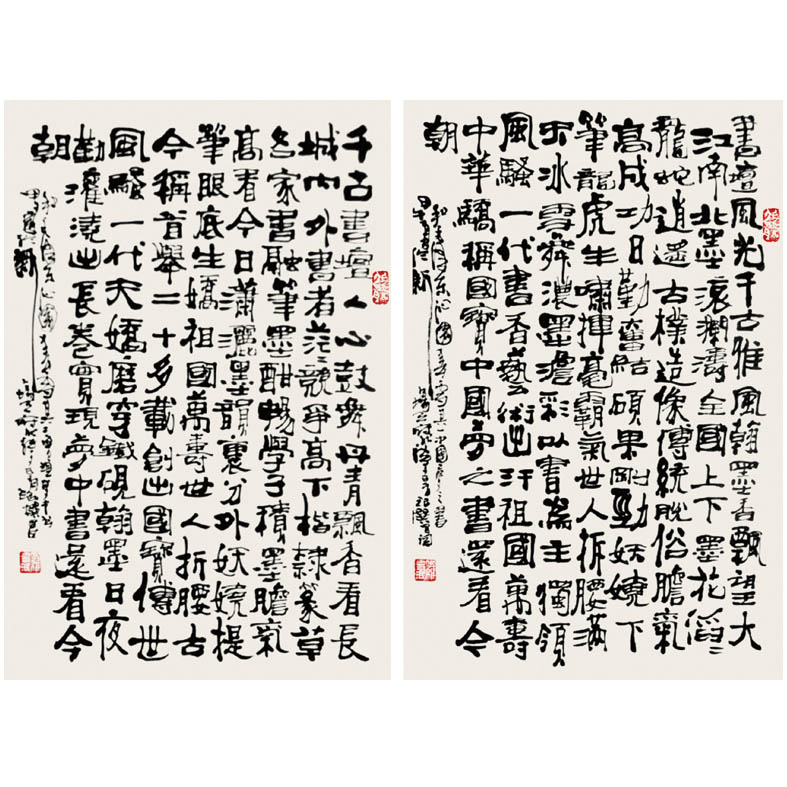 書壇風光千古雅風翰墨香飄望大
江南北墨滾潤濤全國上下墨花滔〻
龍蛇逍遥古樸造像傳統脫俗膽氣
高成功日勤奮結碩果剛勁妖嬈下
筆龍虎生嘯揮毫霸氣世人折腰滿
天冰雪舞濃墨澹彩以書為主獨領
風騷一代書香藝術出汗祖國萬壽
中華驕稱國寶中國夢之書還看今
朝
千古書壇人心鼓舞丹青飄香看長
城内外書者茫〻競爭高下楷隸篆草
名家書融筆墨酣暢學子積墨膽氣
高者今日瀟灑墨韻裏分外妖嬈提
筆眼底生嬌祖國萬壽世人折腰古
今稱首舉二十多載創出國寶傳世
風騷一代天嬌磨穿鐵硯翰墨日夜
勤灌澆出長卷實現夢中書還看今
朝